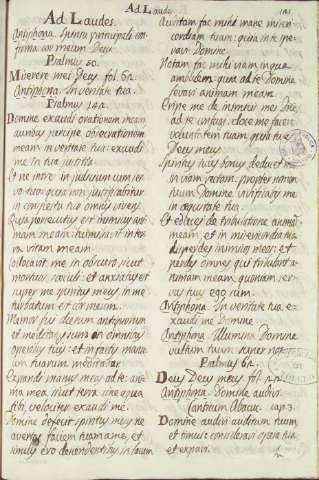 Ad Laudes.
Ad Laudes.
Antiphona. Spiritu principali con
firma cor meum Deus.
Psalmus 50.
Miserere mei Deus fol.
Antiphona. In veritate tua.
Psalmus 142.
Domine exaudi orationem meam
auribus percipe obsecrationem
meam in veritate tua: exaudi
me in tua justitia.
Et ne intres in judicium cum ser
vo tuo: quia non justificabitur
in conspectu tuo omnis vivens.
Quia persecutus est inimicus ani
mam meam: humiliavit in ter
ra vitam meam.
Collocavit me in obscuris sicut
mortuos saeculi: et anxiatus est
super me spiritus meus in me
turbatum est cor meum.
Memor fui dierum antiquorum
et meditatus sum in omnibus
operibus tuis: et in factis manu
um tuarum meditabar.
Expandi manus meas ad te: ani
ma mea sicut terra sine aqua
tibi, velociter exaudi me.
Domine defecit spiritus meus ne
avertas faciem tuam a me, et
similis ero descendentibus in lacum
Auditam fac mihi mane miseri
cordiam tuam: quia in te spe
ravi Domine.
Notam fac mihi viam in qua
ambulem: quia ad te Domine
levavi animam meam.
Eripe me de inimicis meis Dne,
ad te confugi, doce me facere
voluntatem tuam, quia tu es
Deus meus.
Spiritus tuus bonus deducet me
in viam rectam, propter nomen
tuum Domine vivificabis me
in aequitate tua.
Et educes de tribulatione animā
meam, et in misericordia tua
disperdes inimicos meos: et
perdes omnes qui tribulant a
nimam meam, quoniam ser
vus tuus ego sum.
Antiphona. In veritate tua, e-
xaudi me Domine.
Antiphona. Illumina Domine
vultum tuum super nos.
Psalmus 62.
Deus Deus meus fol.
Antiphona. Domine audivi.
Canticum Abacuc cap. 3.
Domine audivi auditum tuum
et timui: consideravi opera tua
et expavi.